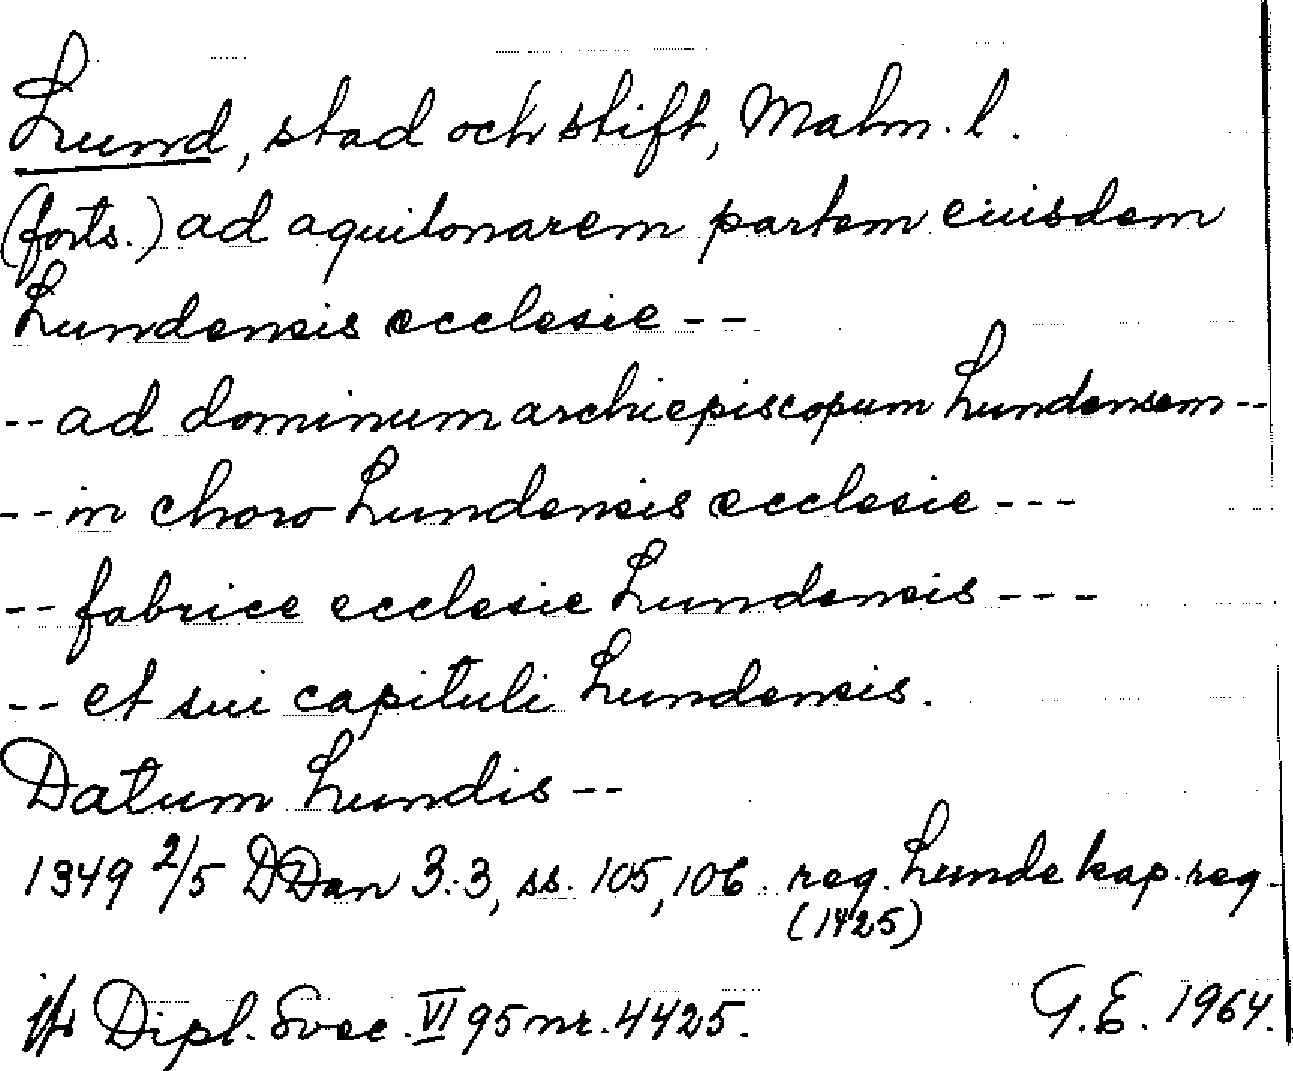 Lund, stad och stift, Malm. l.
(forts.) ad aquilonarem partem eiusdem
Lundensis ecclesie --
-- ad dominum archiepiscopum Lundensem --
-- in choro Lundensis ecclesie ---
-- fabrice ecclesie Lundensis ---
-- et sui capituli Lundensis.
Datum Lundis --
1349 2/5 DDan 3.3, ss. 105, 106. reg. Lunde kap. reg.
(1425)
jfr Dipl. Svec. VI 95 nr. 4425. G.E. 1964.